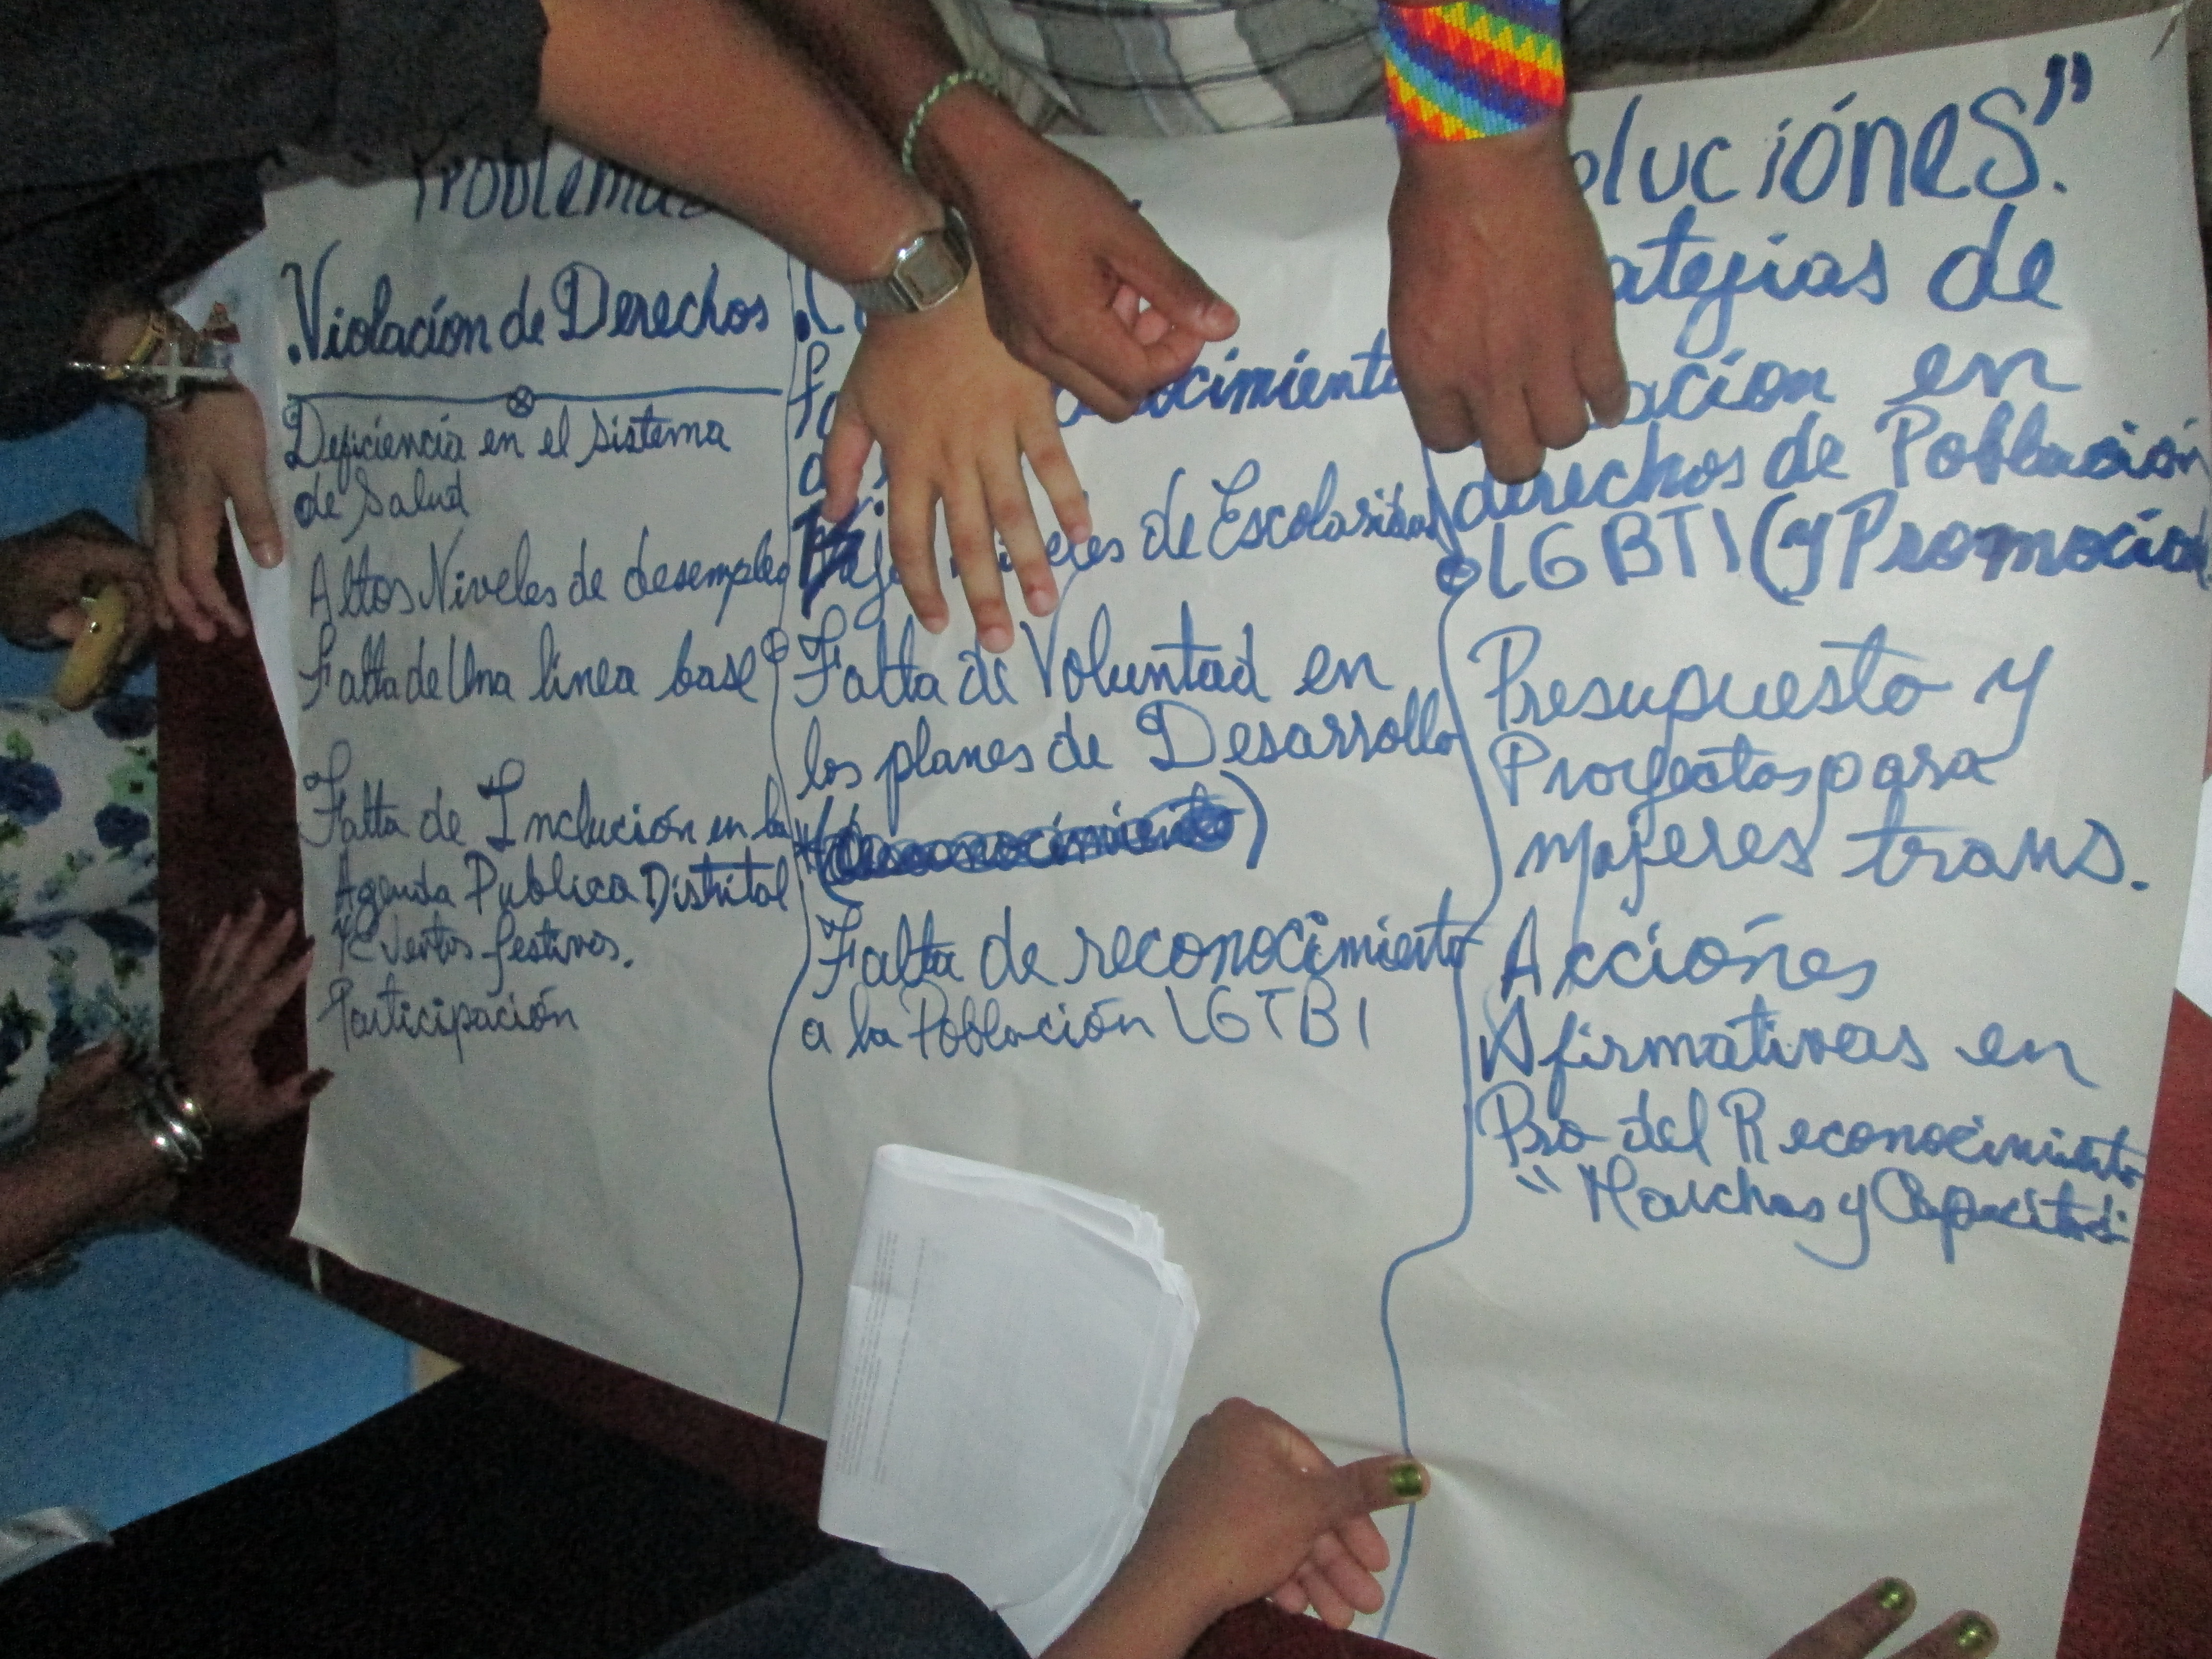 Problemas
.Violación de Derechos
Deficiencia en el sistema
de Salud
Altos Niveles de desempleo
Falta de Una linea base
Falta de Inclución en la
Agenda Publica Distrital
Eventos festivos.
Participación
de Escolaridad
Falta de Voluntad en
los planes de Desarrollo
(desconocimiento)
Falta de reconocimiento
a la Población LGTBI
oluciónes".
ategias de
ación en
derechos de Población
LGBTI (y Promoción
Presupuesto y
Proyectos para
mujeres trans.
Acciónes
Afirmativas en
Pro del Reconocimiento
"Marchas y